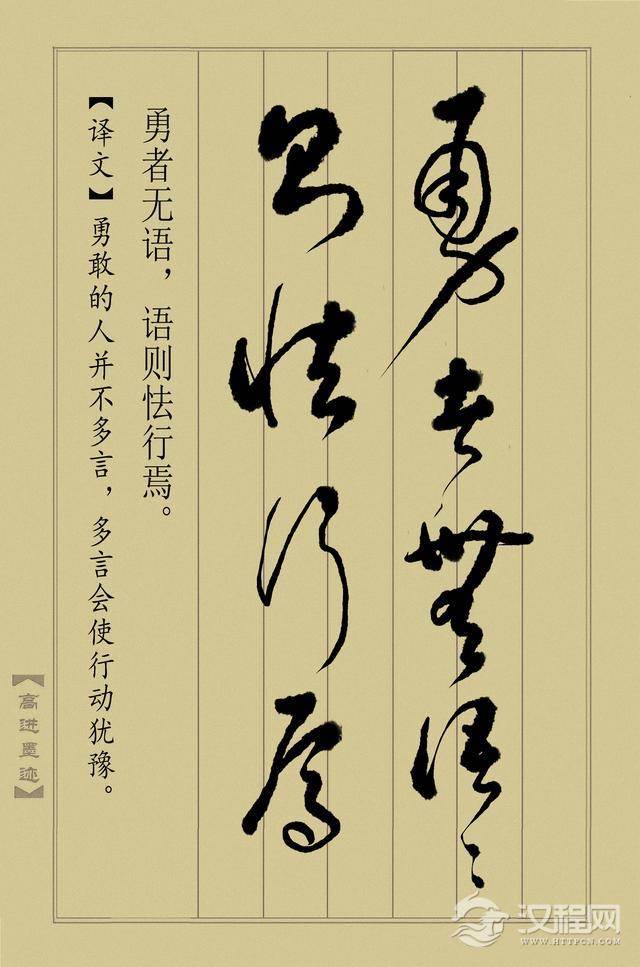 勇者無语〻
则怯行焉
勇者无语，语则怯行焉。
【译文】勇敢的人并不多言，多言会使行动犹豫。
【高进墨迹】
汉程网
WWW.HTTPCN.COM